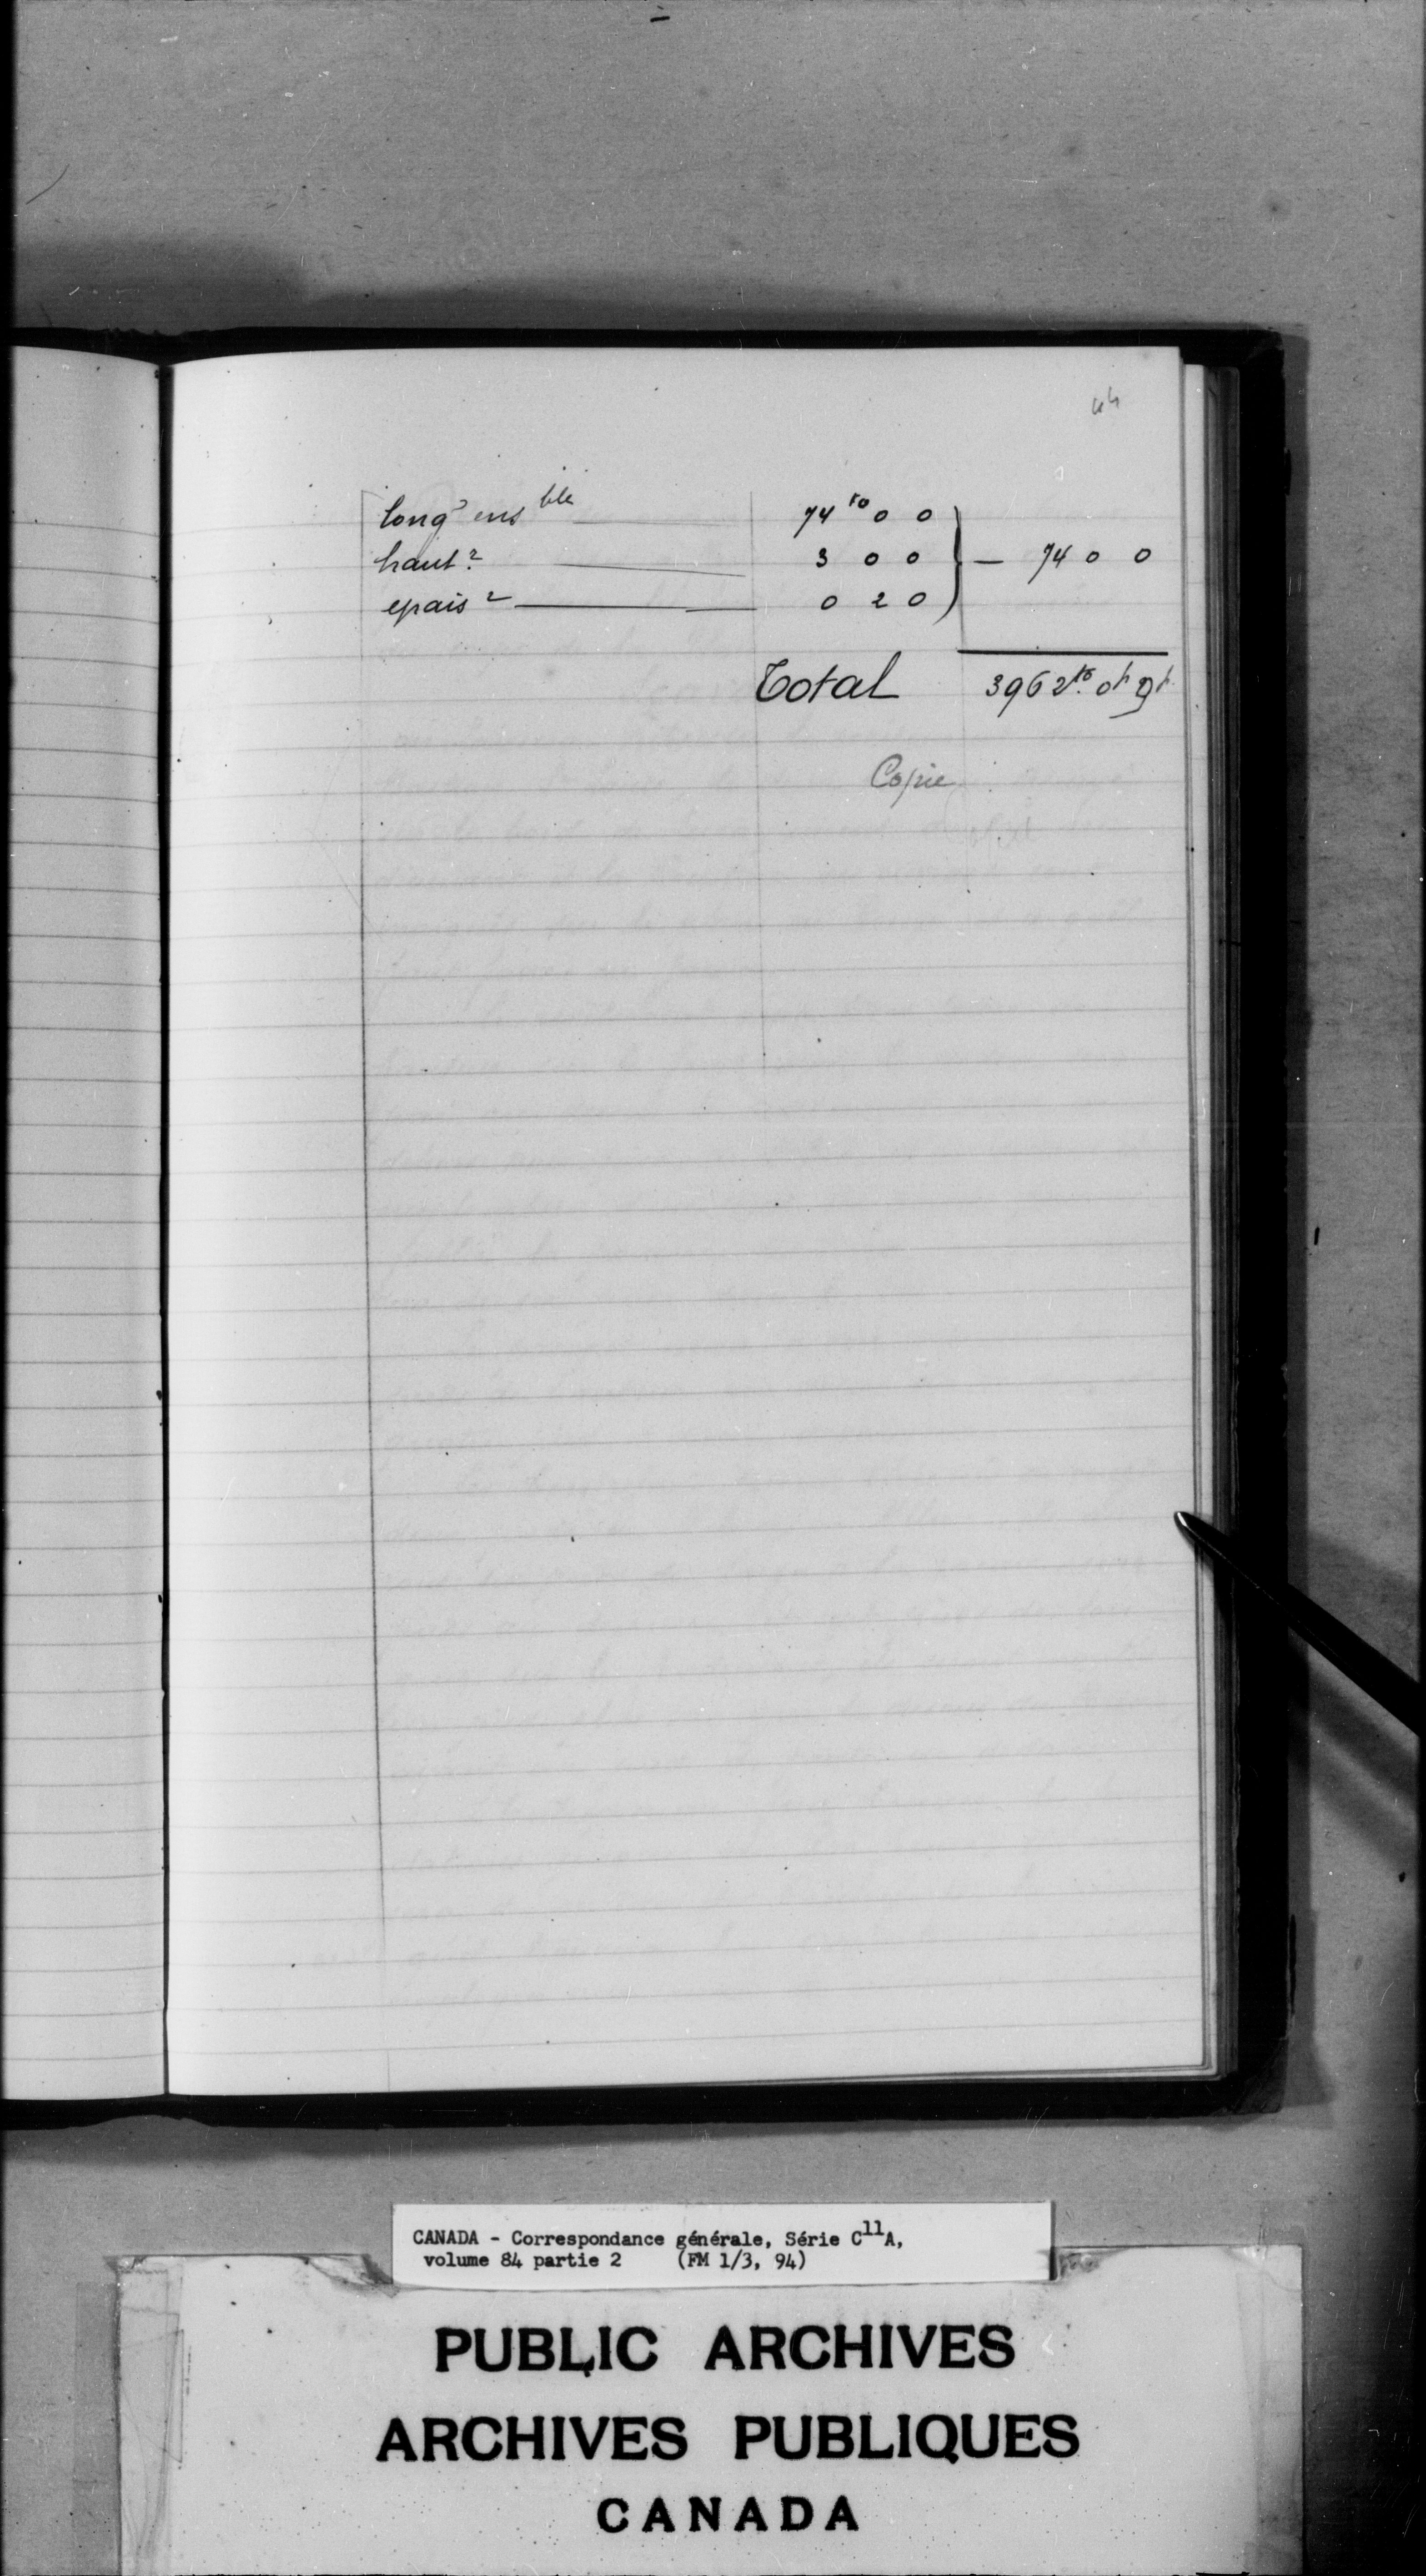 44
long r ens ble 74 to 0 0
haut r 3 0 0 } — 74 0 0
epais r 0 2 0
Total 3962 to. 0 p 9 p.
Copie
CANADA - Correspondance générale, Série C11A,
volume 84 partie 2 (FM 1/3, 94)
PUBLIC ARCHIVES
ARCHIVES PUBLIQUES
CANADA